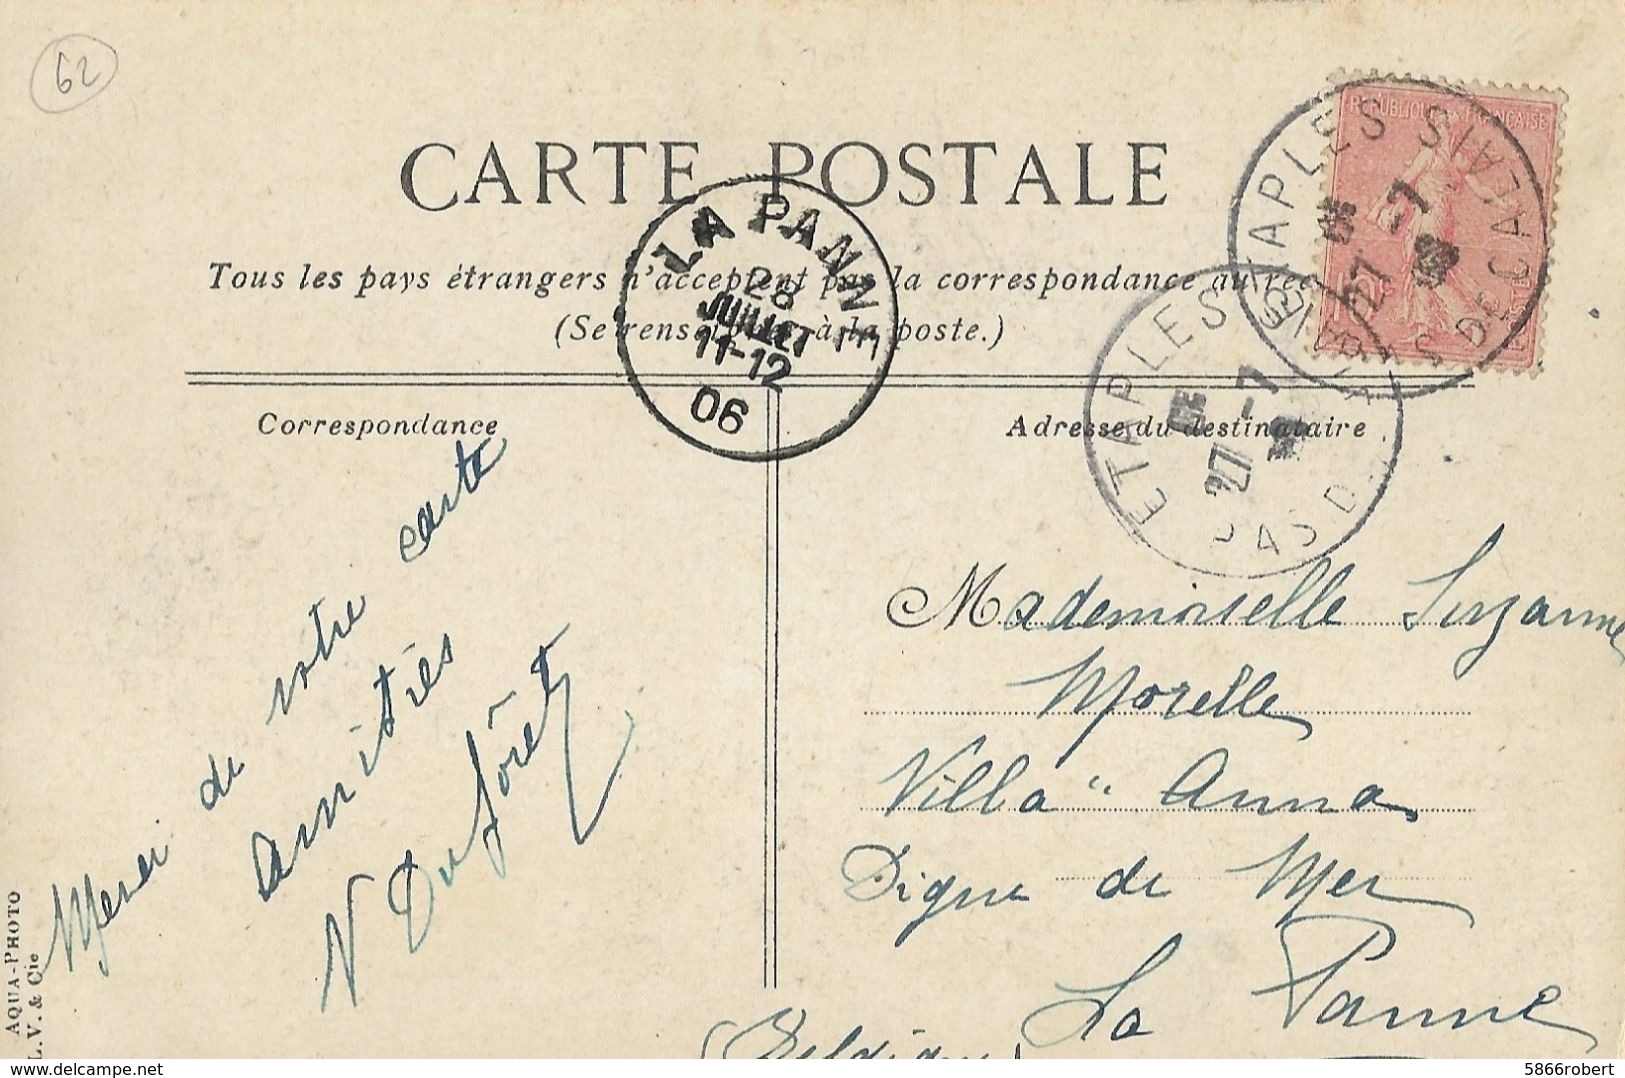 62
CARTE POSTALE
Tous les pays étrangers n'acceptent pas la correspondance au recto
(Se renseigner à la poste.)
RÉPUBLIQUE FRANÇAISE
ETAPLES
PAS DE CALAIS
27 -7
06
ETAPLES
PAS DE CALAIS
27 -7
LA PANNE
28
JUILLET
11-12
06
Correspondance
Merci de votre carte
amitiés
Adresse du destinataire
Mademoiselle Suzanne
Morelle
Villa "Anna
Digue de Mer
La Panne
(Belgique)
AQUA-PHOTO
L. V. & Cie
delcampe.net
5866robert